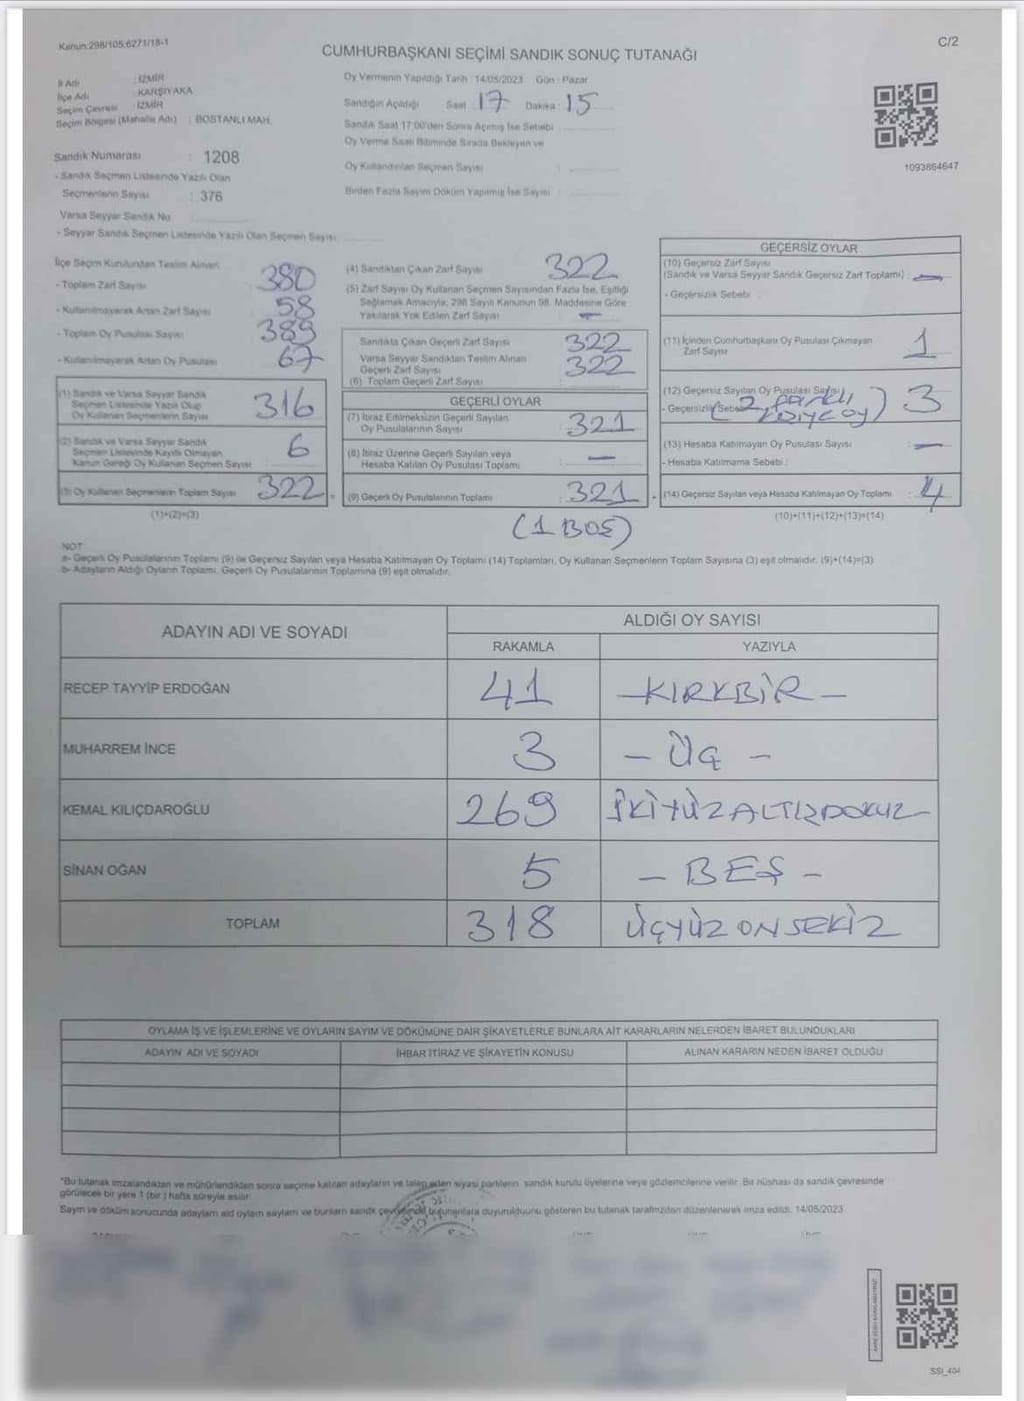 Kanun:298/105,6271/18-1
C/2
CUMHURBAŞKANI SEÇİMİ SANDIK SONUÇ TUTANAĞI
İl Adı : İZMİR
İlçe Adı : KARŞIYAKA
Seçim Çevresi : İZMİR
Seçim Bölgesi (Mahalle Adı) : BOSTANLI MAH.
Sandık Numarası : 1208
- Sandık Seçmen Listesinde Yazılı Olan
Seçmenlerin Sayısı : 376
Varsa Seyyar Sandık No
- Seyyar Sandık Seçmen Listesinde Yazılı Olan Seçmen Sayısı
Oy Vermenin Yapıldığı Tarih : 14/05/2023 Gün : Pazar
Sandığın Açıldığı Saat : 17 Dakika : 15
Sandık Saat 17:00'den Sonra Açılmış İse Sebebi :
Oy Verme Saati Bitiminde Sırada Bekleyen ve
Oy Kullandırılan Seçmen Sayısı :
Birden Fazla Sayım Döküm Yapılmış İse Sayısı :
1093864647
İlçe Seçim Kurulundan Teslim Alınan
- Toplam Zarf Sayısı 380
- Kullanılmayarak Artan Zarf Sayısı 58
- Toplam Oy Pusulası Sayısı 389
- Kullanılmayarak Artan Oy Pusulası 67
(1) Sandık ve Varsa Seyyar Sandık
Seçmen Listesinde Yazılı Olup
Oy Kullanan Seçmenlerin Sayısı 316
(2) Sandık ve Varsa Seyyar Sandık
Seçmen Listesinde Kayıtlı Olmayan
Kanun Gereği Oy Kullanan Seçmen Sayısı 6
(3) Oy Kullanan Seçmenlerin Toplam Sayısı 322
(1)+(2)=(3)
(4) Sandıktan Çıkan Zarf Sayısı 322
(5) Zarf Sayısı Oy Kullanan Seçmen Sayısından Fazla İse, Eşitliği
Sağlamak Amacıyla, 298 Sayılı Kanunun 98. Maddesine Göre
Yakılarak Yok Edilen Zarf Sayısı : —
Sandıkta Çıkan Geçerli Zarf Sayısı 322
Varsa Seyyar Sandıktan Teslim Alınan
Geçerli Zarf Sayısı 322
(6) Toplam Geçerli Zarf Sayısı :
GEÇERLİ OYLAR
(7) İtiraz Edilmeksizin Geçerli Sayılan
Oy Pusulalarının Sayısı : 321
(8) İtiraz Üzerine Geçerli Sayılan veya
Hesaba Katılan Oy Pusulası Toplamı : —
(9) Geçerli Oy Pusulalarının Toplamı : 321
(1 BOŞ)
GEÇERSİZ OYLAR
(10) Geçersiz Zarf Sayısı
(Sandık ve Varsa Seyyar Sandık Geçersiz Zarf Toplamı) : —
- Geçersizlik Sebebi :
(11) İçinden Cumhurbaşkanı Oy Pusulası Çıkmayan
Zarf Sayısı : 1
(12) Geçersiz Sayılan Oy Pusulası Sayısı 3
- Geçersizlik Sebebi
(13) Hesaba Katılmayan Oy Pusulası Sayısı : —
- Hesaba Katılmama Sebebi :
(14) Geçersiz Sayılan veya Hesaba Katılmayan Oy Toplamı : 4
(10)+(11)+(12)+(13)=(14)
NOT:
a- Geçerli Oy Pusulalarının Toplamı (9) ile Geçersiz Sayılan veya Hesaba Katılmayan Oy Toplamı (14) Toplamları, Oy Kullanan Seçmenlerin Toplam Sayısına (3) eşit olmalıdır. (9)+(14)=(3)
b- Adayların Aldığı Oyların Toplamı, Geçerli Oy Pusulalarının Toplamına (9) eşit olmalıdır.
ADAYIN ADI VE SOYADI ALDIĞI OY SAYISI
RAKAMLA YAZIYLA
RECEP TAYYİP ERDOĞAN 41 —KIRKBİR—
MUHARREM İNCE 3 — ÜÇ —
KEMAL KILIÇDAROĞLU 269
SİNAN OĞAN 5 — BEŞ —
TOPLAM 318 ÜÇYÜZ ONSEKİZ
OYLAMA İŞ VE İŞLEMLERİNE VE OYLARIN SAYIM VE DÖKÜMÜNE DAİR ŞİKAYETLERLE BUNLARA AİT KARARLARIN NELERDEN İBARET BULUNDUKLARI
ADAYIN ADI VE SOYADI İHBAR İTİRAZ VE ŞİKAYETİN KONUSU ALINAN KARARIN NEDEN İBARET OLDUĞU
*Bu tutanak imzalandıktan ve mühürlendikten sonra seçime katılan adayların ve talep eden siyasi partilerin sandık kurulu üyelerine veya gözlemcilerine verilir. Bir nüshası da sandık çevresinde
görülecek bir yere 1 (bir) hafta süreyle asılır.
Sayım ve döküm sonucunda adayların aldığı oyların sayısını ve bunların sandık çevresinde bulunanlara duyurulduğunu gösteren bu tutanak tarafımızdan düzenlenerek imza edildi. 14/05/2023
SSI_404